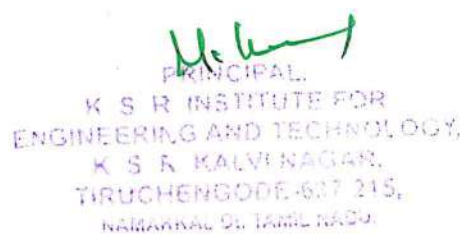 PRINCIPAL,
K S R INSTITUTE FOR
ENGINEERING AND TECHNOLOGY,
K S R KALVI NAGAR,
TIRUCHENGODE-637 215,
NAMAKKAL Dt. TAMIL NADU.